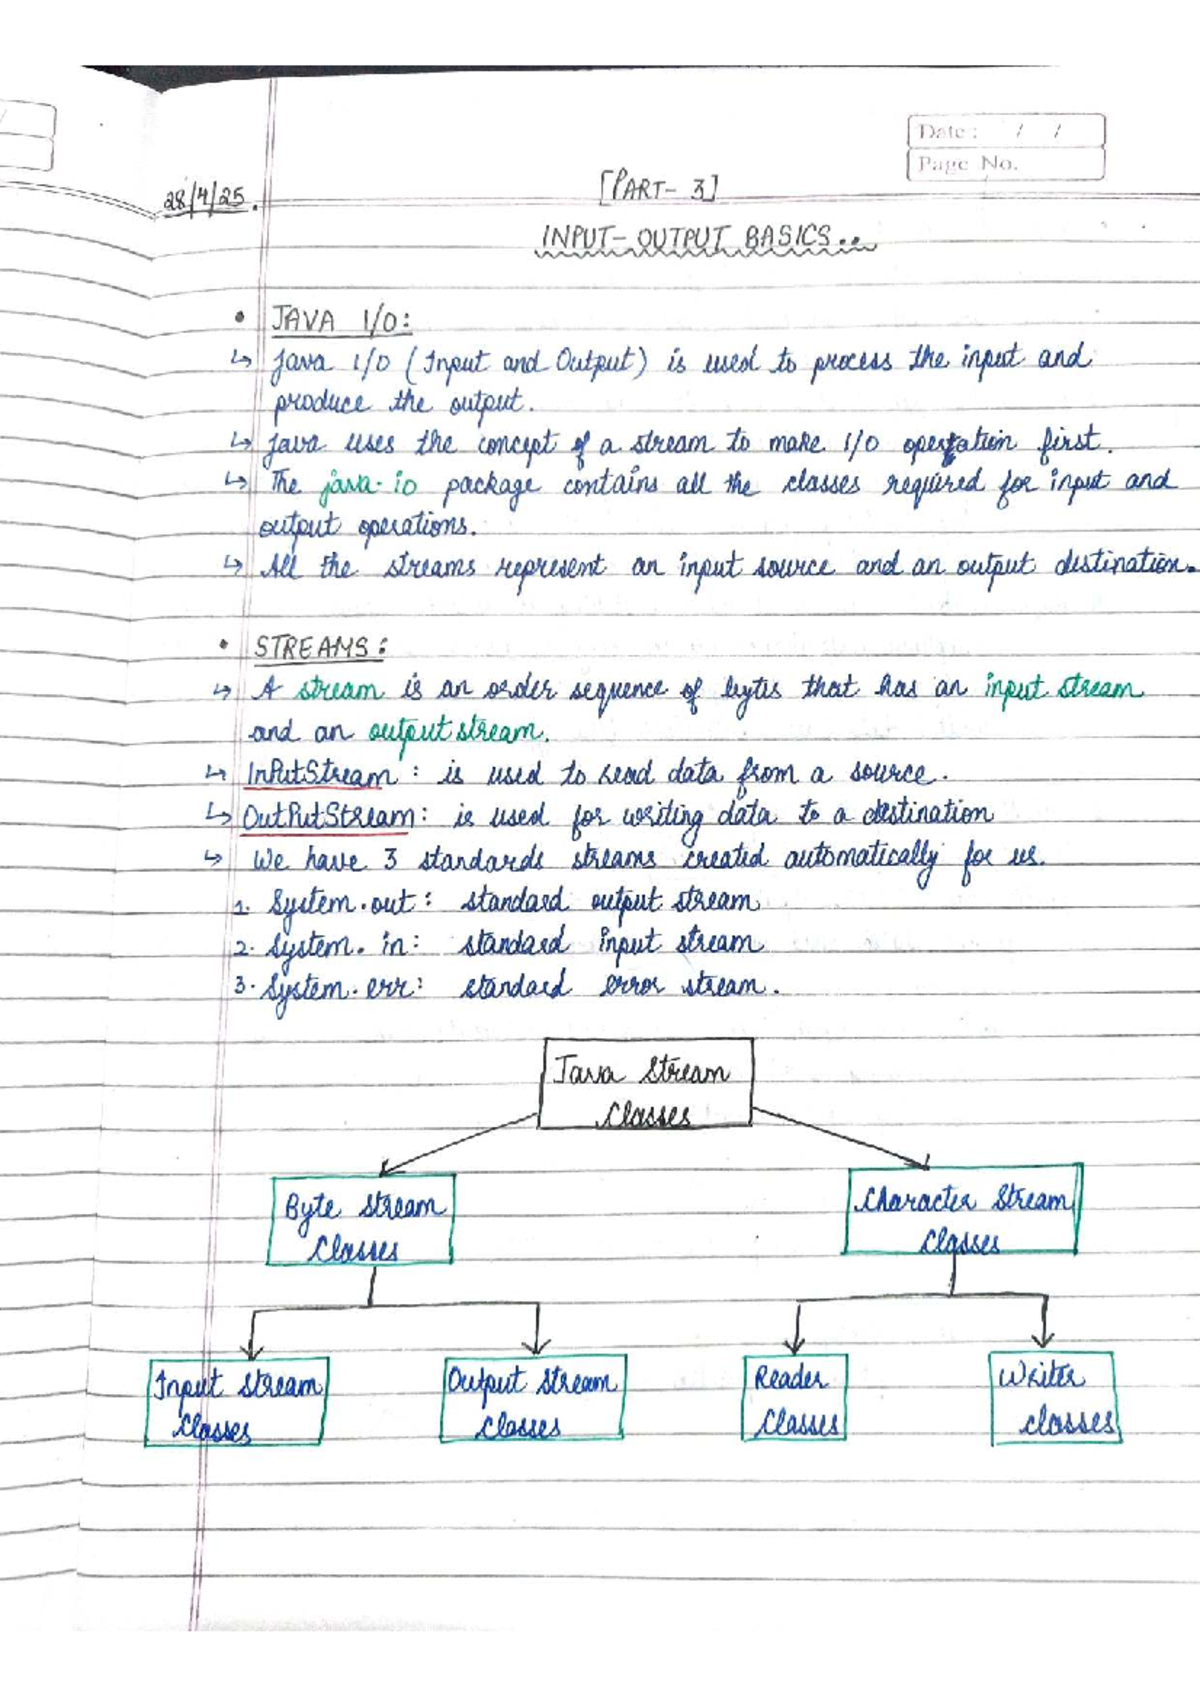 Date : / /
Page No.
28/4/25.
[PART- 3]
INPUT-OUTPUT BASICS..
• JAVA I/O:
↳ Java I/O (Input and Output) is used to process the input and
produce the output.
↳ Java uses the concept of a stream to make I/O operation first.
↳ The java.io package contains all the classes required for input and
output operations.
↳ All the streams represent an input source and an output destination.
• STREAMS:
↳ A stream is an order sequence of bytes that has an input stream
and an output stream.
↳ InPutStream : is used to read data from a source.
↳ OutPutStream: is used for writing data to a destination
↳ We have 3 standards streams created automatically for us.
1. System.out : standard output stream
2. System.in : standard input stream
3. System.err : standard error stream.
Java Stream
Classes
Byte Stream
Classes
Character Stream
Classes
Input Stream
Classes
Output Stream
Classes
Reader
Classes
Writer
Classes